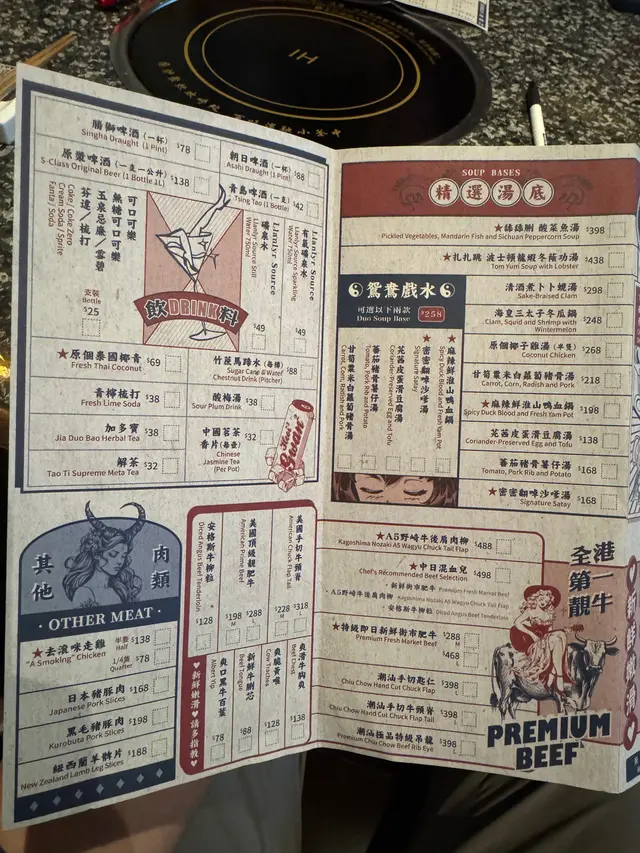 勝獅啤酒（一杯）
Singha Draught (1 Pint)
$78
朝日啤酒（一杯）
Asahi Draught (1 Pint)
$88
原漿啤酒（一支一公升）
S-Class Original Beer (1 Bottle 1L)
$138
青島啤酒（一支）
Tsing Tao (1 Bottle)
$42
可口可樂
無糖可口可樂
玉泉忌廉／雲碧
芬達／梳打
Coke / Coke Zero
Cream Soda / Sprite
Fanta / Soda
支裝
Bottle
$25
飲DRINK料
Llanlyr Source
礦泉水
Llanlyr Source Still
Water 750ml
$49
Llanlyr Source
有氣礦泉水
Llanlyr Source Sparkling
Water 750ml
$49
★原個泰國椰青
Fresh Thai Coconut
$69
竹蔗馬蹄水（每樽）
Sugar Cane & Water
Chestnut Drink (Pitcher)
$88
青檸梳打
Fresh Lime Soda
$38
酸梅湯
Sour Plum Drink
$38
加多寶
Jia Duo Bao Herbal Tea
$38
中國茗茶
香片（每壺）
Chinese
Jasmine Tea
(Per Pot)
$32
解茶
Tao Ti Supreme Meta Tea
$32
其他
肉類
· OTHER MEAT ·
★去滾味走雞
"A Smoking" Chicken
半隻
Half
$138
1/4隻
Quarter
$78
日本豬豚肉
Japanese Pork Slices
$168
黑毛豬豚肉
Kurobuta Pork Slices
$198
紐西蘭羊髀片
New Zealand Lamb Leg Slices
$188
安格斯牛柳粒
Diced Angus Beef Tenderloin
$128
美國頂級靚肥牛
American Prime Beef
$198 M
$288 L
美國手切牛頸脊
American Chuck Flap Tail
$228 M
$318 L
♥新鮮嫩滑♥請多指教♥
爽口黑牛百葉
$78
新鮮牛脷芯
Beef Tongue
$88
爽脆黃喉
Cow Trachea
$128
爽滑牛胸爽
Beef Chest
$138
SOUP BASES
精選湯底
酸菜魚湯
Pickled Vegetables, Mandarin Fish and Sichuan Peppercorn Soup
$398
★扎扎跳 波士頓龍蝦冬蔭功湯
Tom Yum Soup with Lobster
$438
清酒煮卜卜蜆湯
Sake-Braised Clam
$298
海皇三太子冬瓜鍋
Clam, Squid and Shrimp with
Wintermelon
$248
原個椰子雞湯（半隻）
Coconut Chicken
$268
甘筍粟米白蘿蔔豬骨湯
Carrot, Corn, Radish and Pork
$218
★麻辣鮮淮山鴨血鍋
Spicy Duck Blood and Fresh Yam Pot
$198
芫茜皮蛋滑豆腐湯
Coriander-Preserved Egg and Tofu
$138
蕃茄豬骨薯仔湯
Tomato, Pork Rib and Potato
$168
★密密翻啅沙嗲湯
Signature Satay
$168
鴛鴦戲水
可選以下兩款
Duo Soup Base
$258
甘筍粟米白蘿蔔豬骨湯
Carrot, Corn, Radish and Pork
蕃茄豬骨薯仔湯
Tomato, Pork Rib and Potato
芫茜皮蛋滑豆腐湯
Coriander-Preserved Egg and Tofu
★密密翻啅沙嗲湯
Signature Satay
★麻辣鮮淮山鴨血鍋
Spicy Duck Blood and Fresh Yam Pot
★A5野崎牛後肩肉柳
Kagoshima Nozaki A5 Wagyu Chuck Tail Flap
$488
★中日混血兒
Chef's Recommended Beef Selection
$498
· 新鮮街市肥牛 Premium Fresh Market Beef
· A5野崎牛後肩肉柳 Kagoshima Nozaki A5 Wagyu Chuck Tail Flap
· 安格斯牛柳粒 Diced Angus Beef Tenderloin
★特級即日新鮮街市肥牛
Premium Fresh Market Beef
$288 M
$468
潮汕手切匙仁
Chiu Chow Hand Cut Chuck Flap
$398 L
潮汕手切牛頸脊
Chiu Chow Hand Cut Chuck Flap Tail
$398 L
潮汕極品特級吊龍
Premium Chiu Chow Beef Rib Eye
$398 L
全港
第一
靚牛
PREMIUM
BEEF